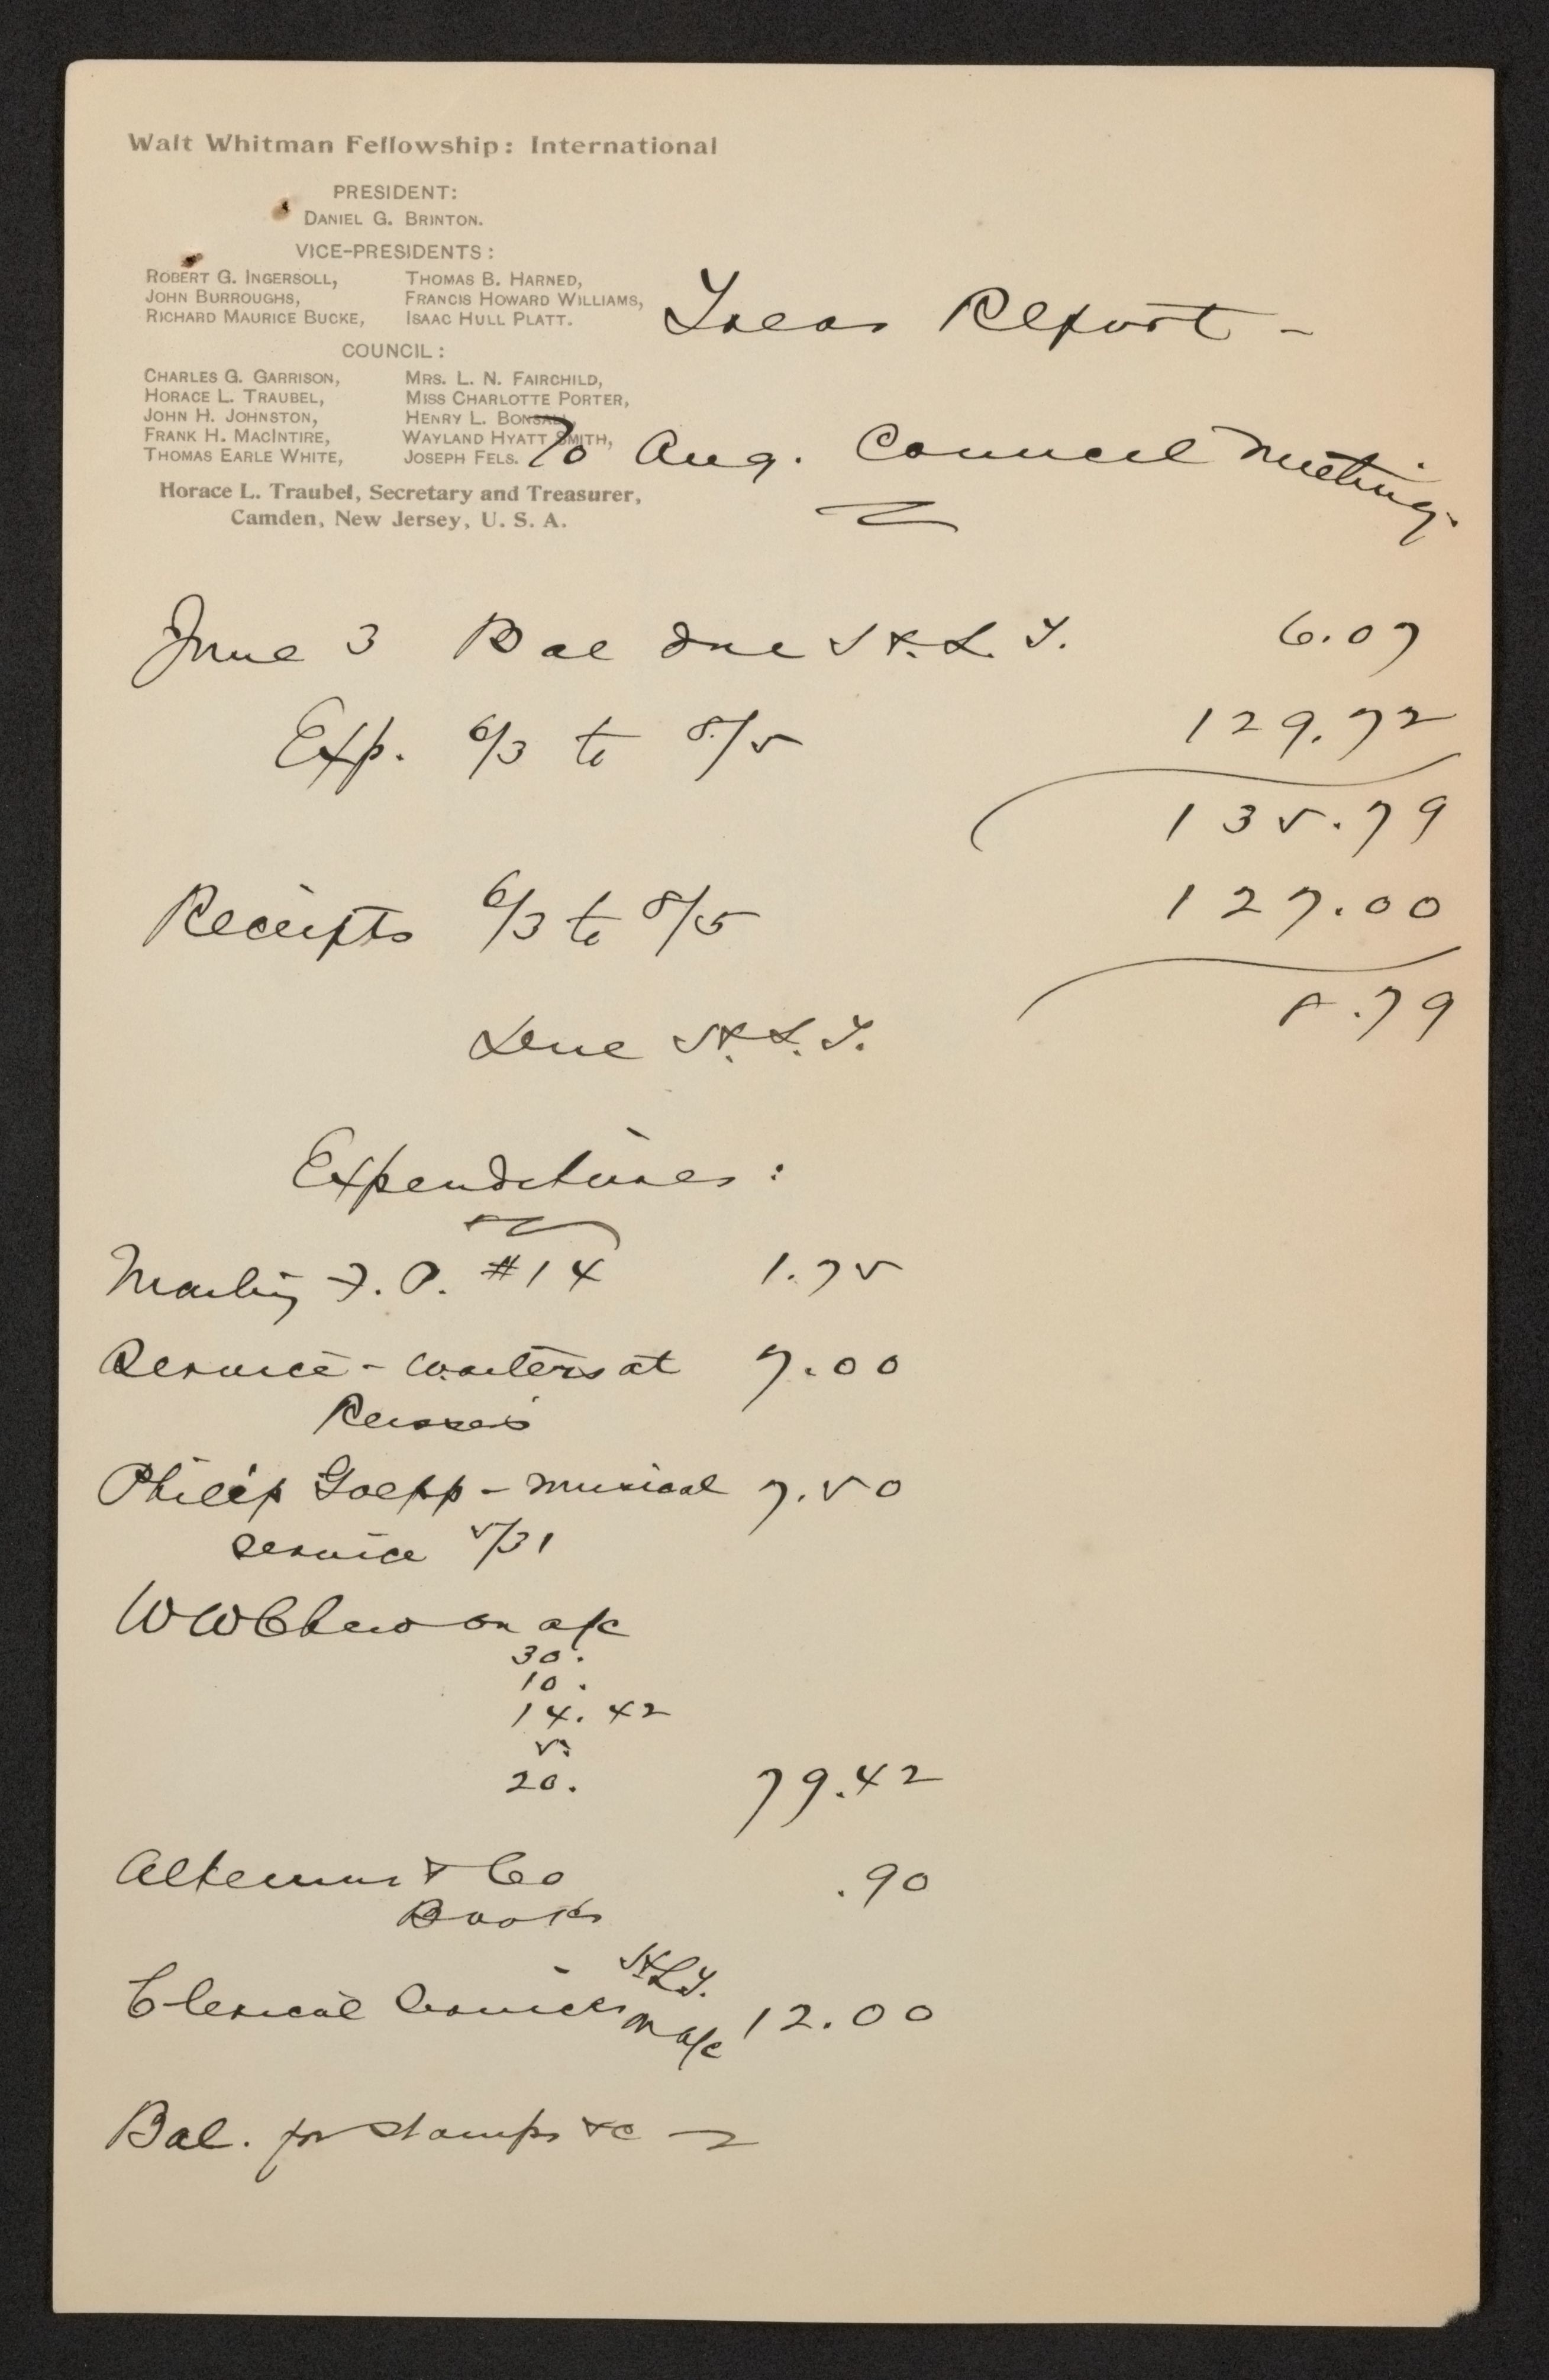 Walt Whitman Fellowship: International
PRESIDENT:
DANIEL G. BRINTON.
VICE-PRESIDENTS:
ROBERT G. INGERSOLL, THOMAS B. HARNED,
JOHN BURROUGHS, FRANCIS HOWARD WILLIAMS,
RICHARD MAURICE BUCKE, ISAAC HULL PLATT.
COUNCIL:
CHARLES G. GARRISON, MRS. L. N. FAIRCHILD,
HORACE L. TRAUBEL, MISS CHARLOTTE PORTER,
JOHN H. JOHNSTON, HENRY L. BONSALL,
FRANK H. MACINTIRE, WAYLAND HYATT SMITH,
THOMAS EARLE WHITE, JOSEPH FELS.
Horace L. Traubel, Secretary and Treasurer,
Camden, New Jersey, U. S. A.
Treas Report -
To Aug. Council Meeting.
June 3 Bal due H. L. T. 6.07
Exp. 6/3 to 8/5 129.72
135.79
Receipts 6/3 to 8/5 127.00
8.79
Due H. L. T.
Expenditures:
Mailing F. P. #14 1.75
Service - waiters at 7.00
Reisser's
Philip Goepp - musical 7.50
service 5/31
WWChew on a/c
30.
10.
14.42
5.
20. 79.42
Altemus & Co .90
Books
Clerical Services H L T. on a/c 12.00
Bal. for stamps &c